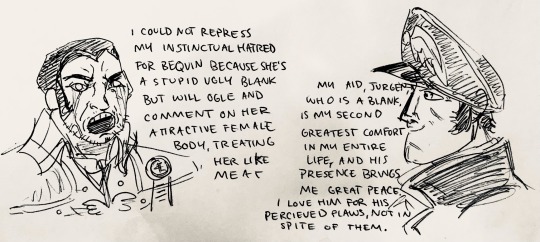 I COULD NOT REPRESS
MY INSTINCTUAL HATRED
FOR BEQUIN BECAUSE SHE'S
A STUPID UGLY BLANK
BUT WILL OGLE AND
COMMENT ON HER
ATTRACTIVE FEMALE
BODY, TREATING
HER LIKE
MEAT
MY AID, JURGEN,
WHO IS A BLANK,
IS MY SECOND
GREATEST COMFORT
IN MY ENTIRE
LIFE, AND HIS
PRESENCE BRINGS
ME GREAT PEACE.
I LOVE HIM FOR HIS
PERCIEVED FLAWS, NOT IN
SPITE OF THEM.